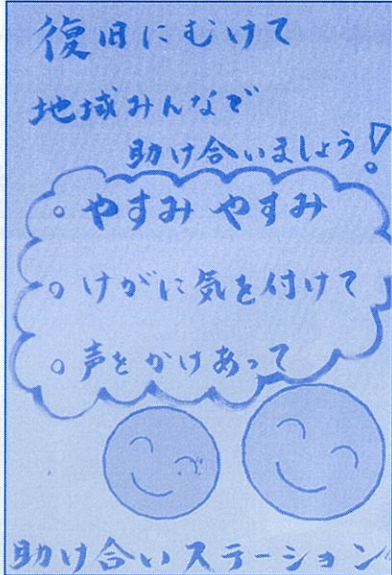 復旧にむけて
地域みんなで
助け合いましょう!
○ やすみ やすみ
○ けがに気を付けて
○ 声をかけあって
助け合いステーション